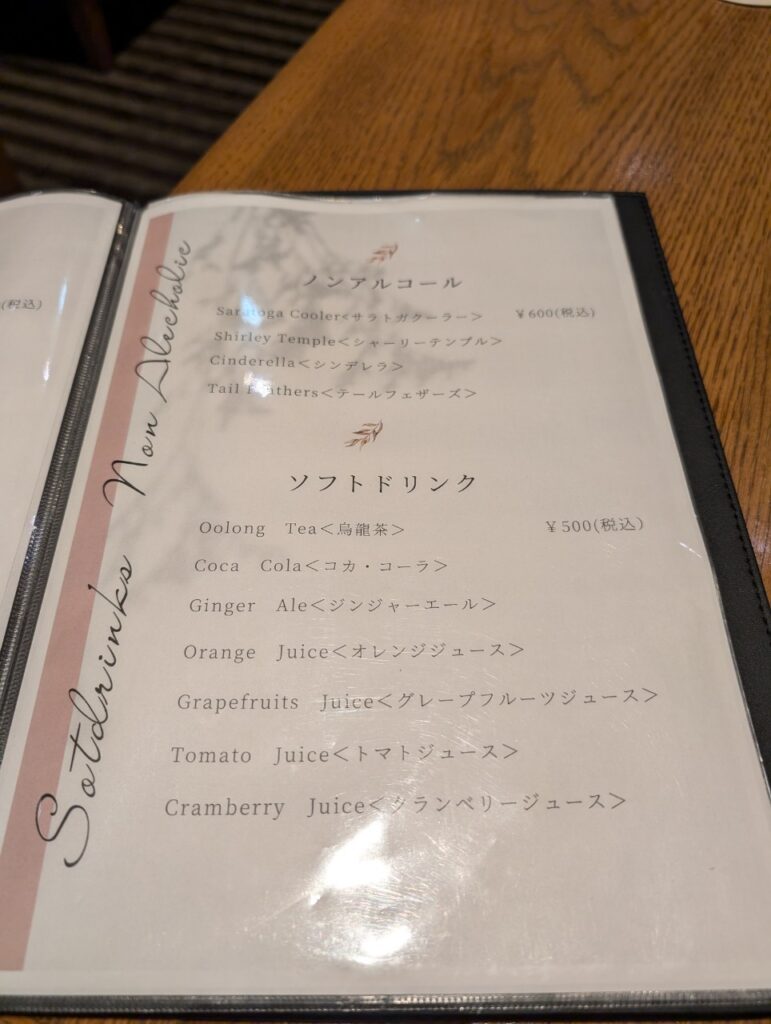 (税込)
Sotdrinks Non Alcoholic
ノンアルコール
Saratoga Cooler<サラトガクーラー> ¥600(税込)
Shirley Temple<シャーリーテンプル>
Cinderella<シンデレラ>
Tail Feathers<テールフェザーズ>
ソフトドリンク
Oolong Tea<烏龍茶> ¥500(税込)
Coca Cola<コカ・コーラ>
Ginger Ale<ジンジャーエール>
Orange Juice<オレンジジュース>
Grapefruits Juice<グレープフルーツジュース>
Tomato Juice<トマトジュース>
Cramberry Juice<クランベリージュース>